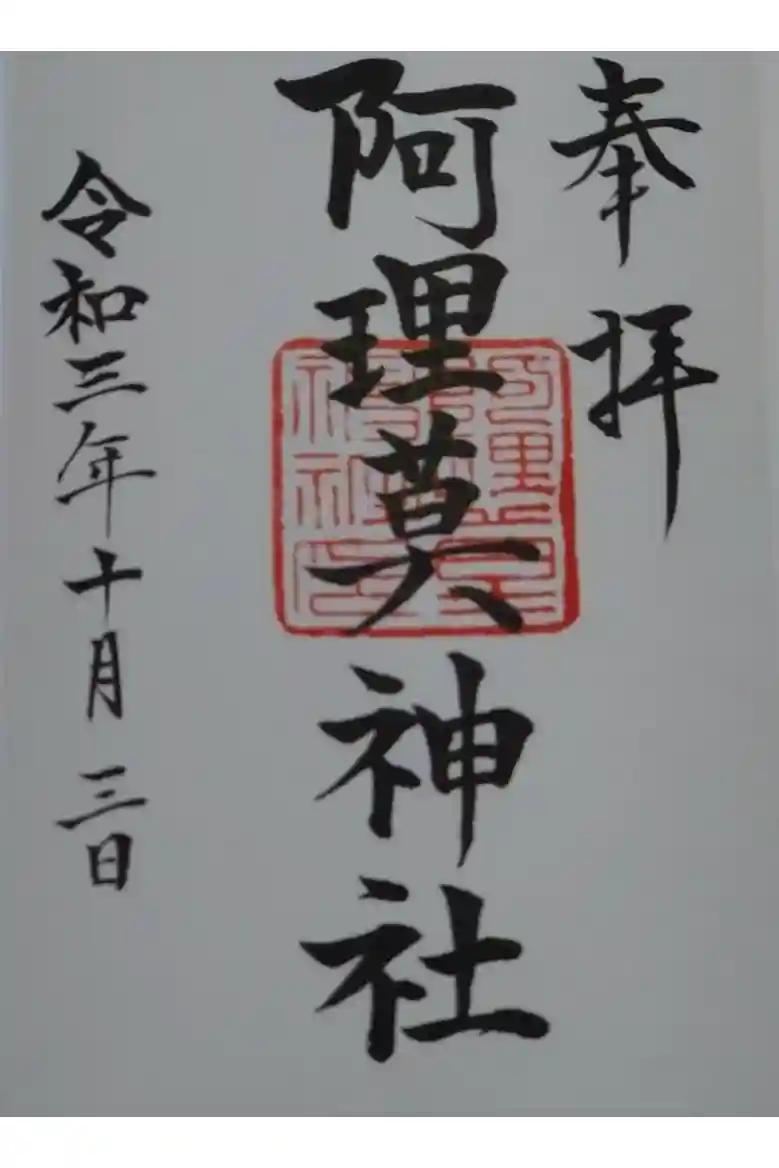 奉拝
阿理莫神社
令和三年十月三日